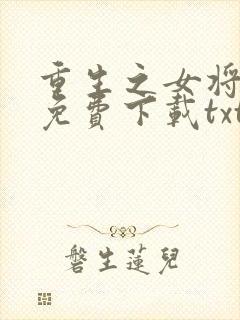 重生之女将
免費下載txt
磐生蓮兒